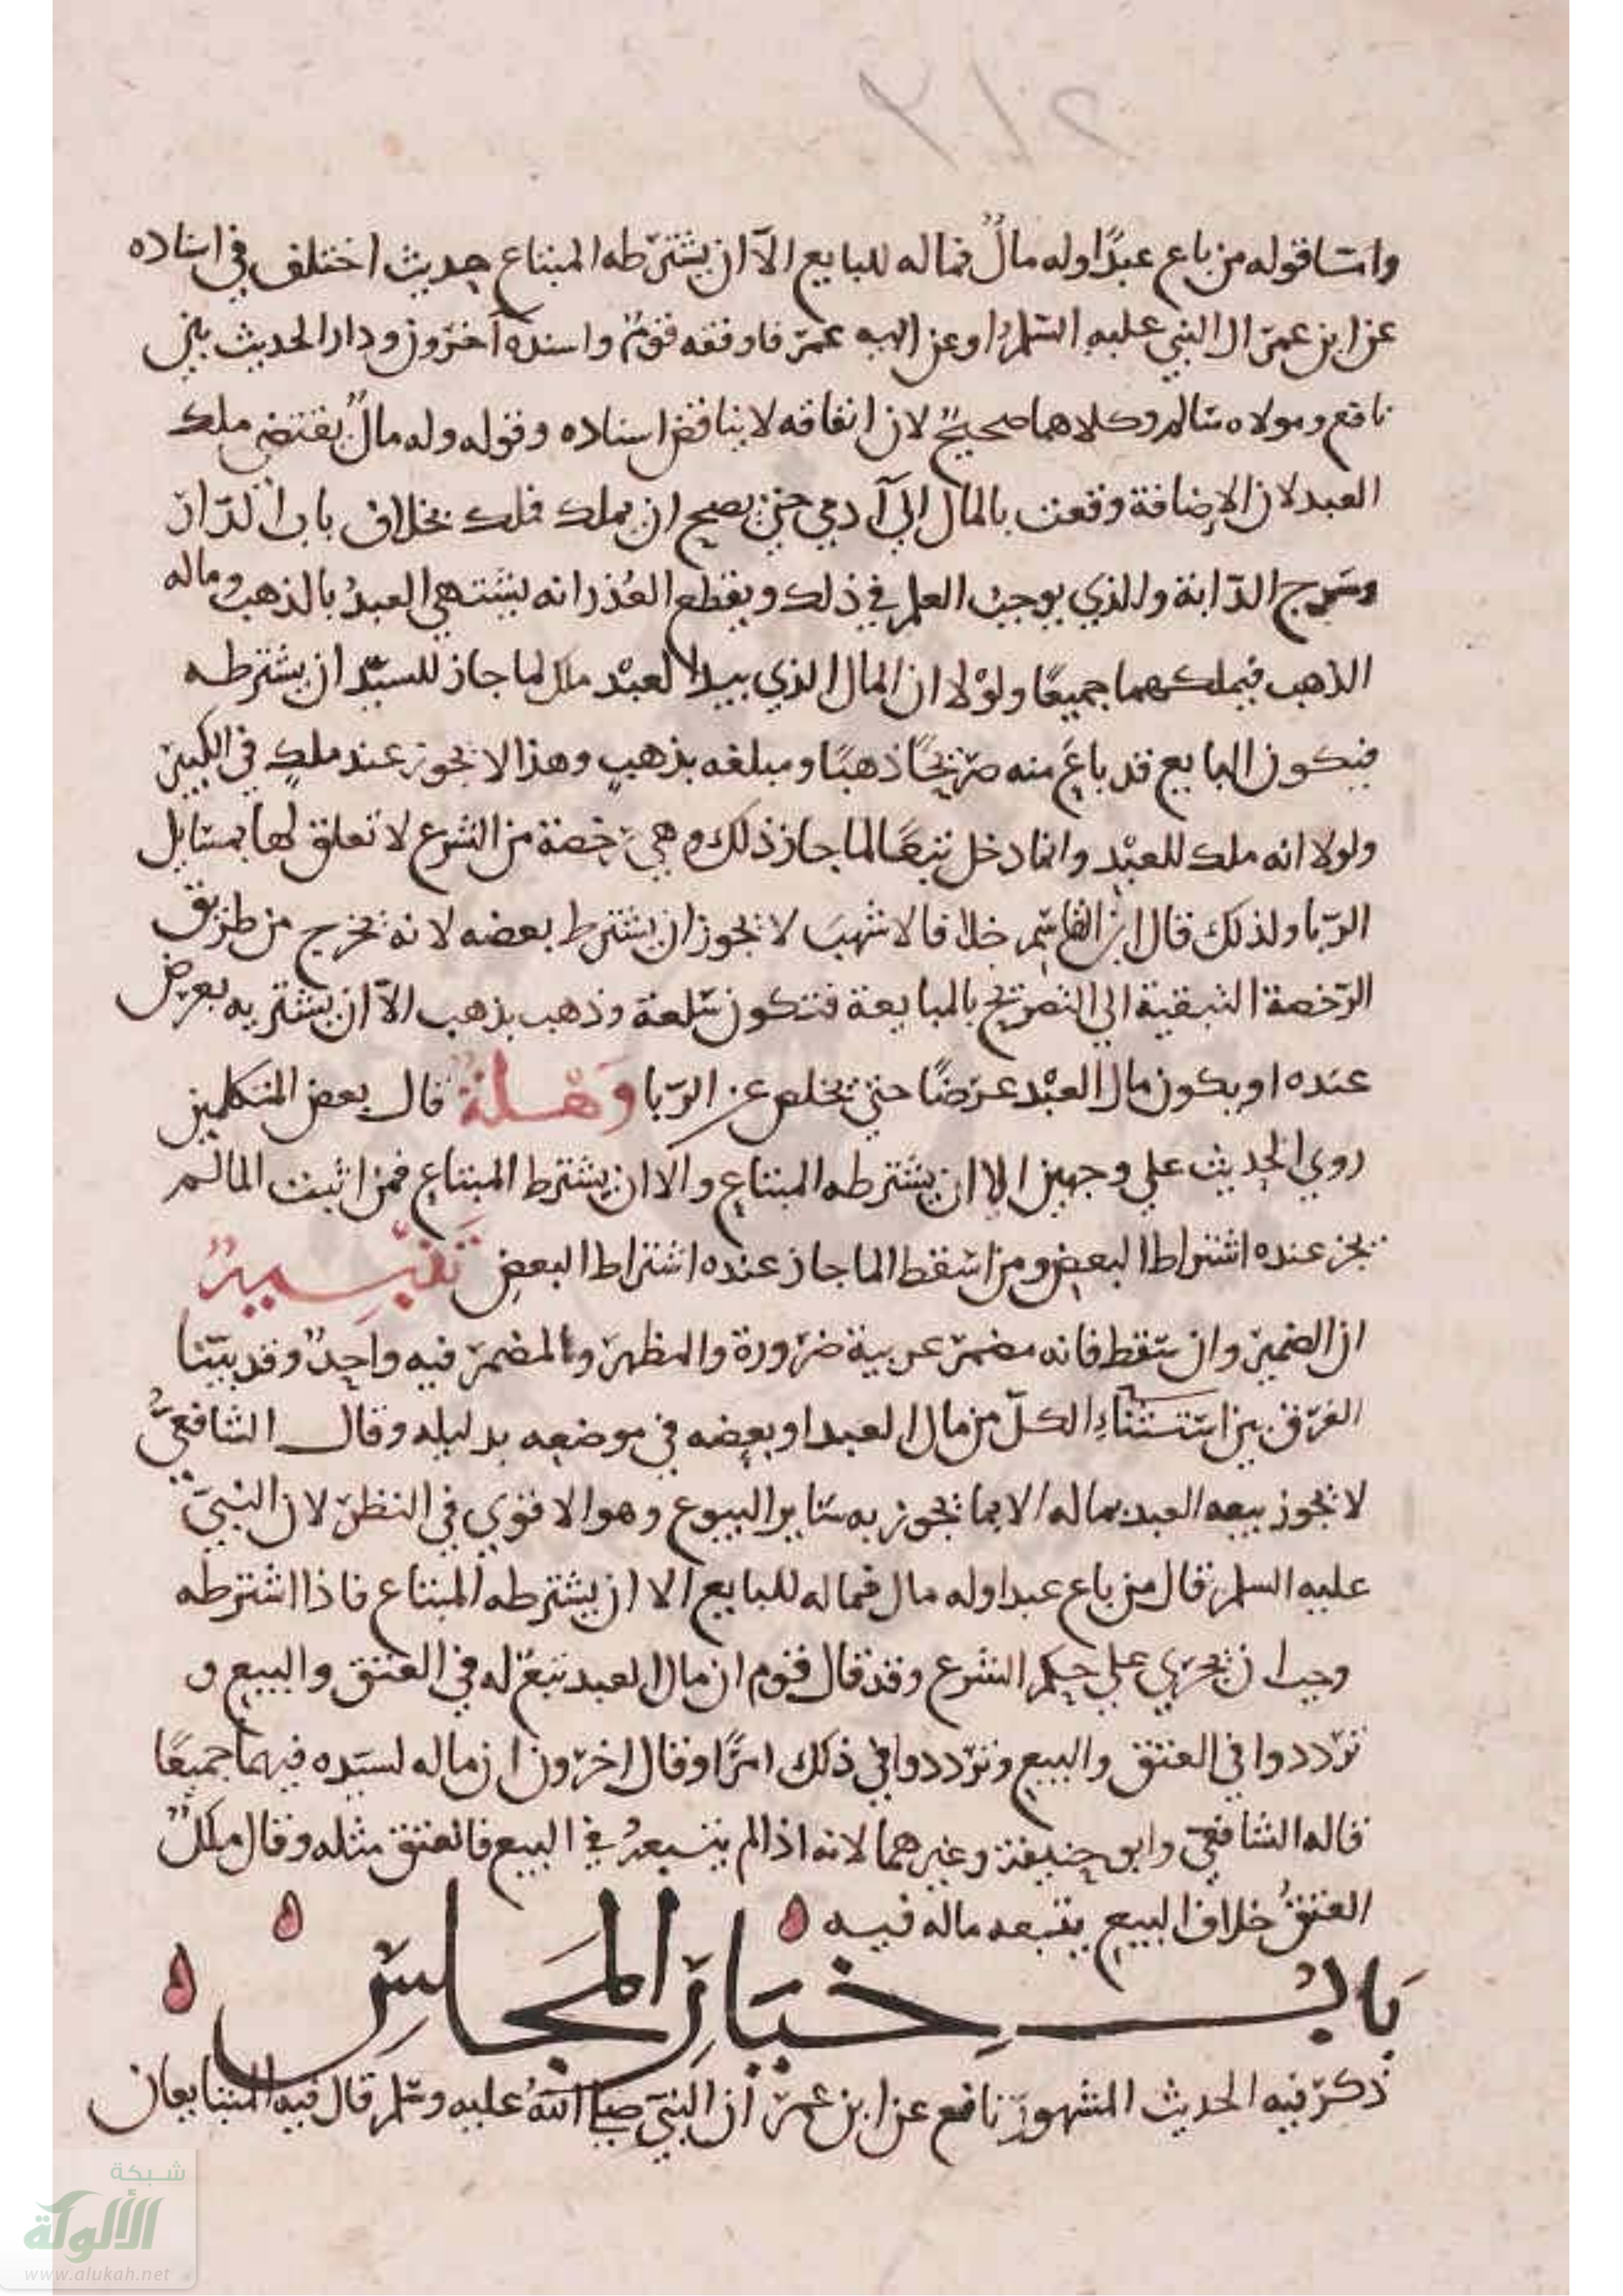 واما قوله من باع عبدًا وله مالٌ فماله للبايع الآ ان يشترطه المبتاع حديث اختلف في اسناده
عن ابن عمر ان النبي عليه السلم او عن ابيه عمر فاوقفه قومٌ واسنده آخرون ودار الحديث بين
نافع ومولاه سالم وكلاهما صحيحٌ لان اتفاقه لا يناقض اسناده وقوله وله مالٌ يقتضي ملك
العبد لان الاضافة وقعت بالمال الي آدمي حتي يصح ان يملك فملك بخلاف باب الدار
وسرج الدابة والذي يوجب العلم في ذلك ويقطع العُذر انه يشتهي العبدُ بالذهب وماله
الذهب فيملكهما جميعًا ولوْلا ان المال الذي بيد العبْد ملك لما جاز للسيّد ان يشترطه
فيكون البايع قد باعَ منه صريحًا ذهبًا ومبلغه بذهبٍ وهذا لا يجوز عند ملكٍ في الكبير
ولولا انه ملك للعبْد وانما دخل تبعًا لما جاز ذلك وهي رخصة من الشرع لا تعلق لها بمسايل
الرّبا ولذلك قال ابن القاسم خلافا لاشهبَ لا يجوز ان يشترط بعضه لانه يخرج من طريق
الرّخصة التبقية الي التصريح بالمبايعة فتكون سلعة وذهب بذهب الآ ان يشتريه بعرض
عنده او يكون مال العبْد عرضًا حتي يخلص عن الرّبا وَهْلةٌ قال بعض المتكلمين
روي الحديث علي وجهين الا ان يشترطه المبتاع والا ان يشترط المبتاع فمن اثبت الها لم
يجز عنده اشتراط البعض ومن اسقط الها جاز عنده اشتراط البعض تَفسِيرٌ
ان الضمير وان سقط فانه مضمر عربية ضرورة والمظهر والمضمر فيه واحدٌ وقد بيّنا
الفرق بين استثناءِ الكلّ من مال العبد او بعضه في موضعه بدليله وقال الشافعيُّ
لا يجوز بيعه العبد بماله الا بما يجوز به ساير البيوع وهو الاقوي في النظر لان النبيّ
عليه السلم قال من باع عبدا وله مال فماله للبايع الا ان يشترطه المبتاع فاذا اشترطه
وجب ان يجري علي حكم الشرع وقد قال قوم ان مال العبد تبعٌ له في العتق والبيع و
تردّدوا في العتق والبيع وتردّدوا في ذلك امرًا وقال اخرون ان ماله لسيّده فيهما جميعًا
قاله الشافعيّ وابو حنيفة وغيرهما لانه اذا لم يتبعهُ في البيع فالعتق مثله وقال ملكٌ
العتقُ خلاف البيع يتبعه ماله فيه
بَابُ خيَارِ المَجَلسِ
ذكر فيه الحديث المشهور نافع عن ابن عمر ان النبيّ صلى اللهُ عليه وسلم قال فيه المتبايعان
شبكة
الألوكة
www.alukah.net